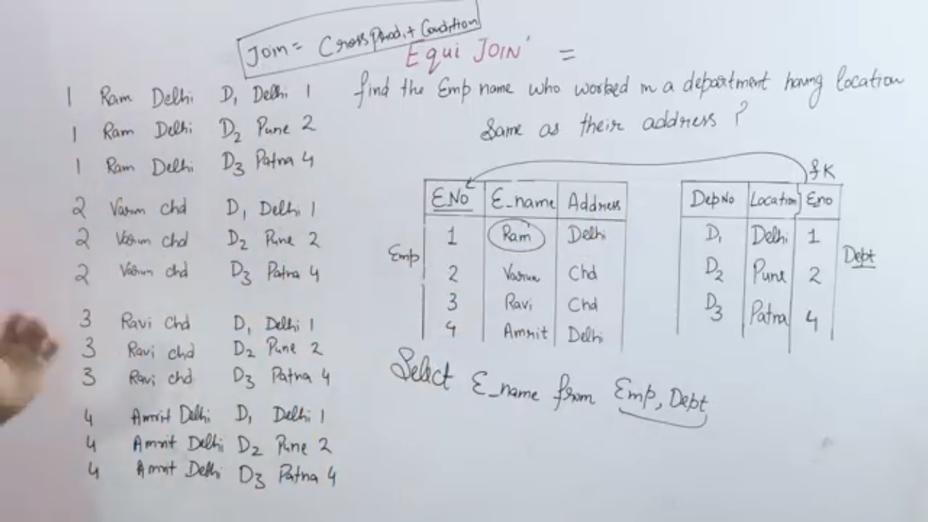 Join = Cross Prod. + Condition
Equi JOIN =
find the Emp name who worked in a department having location
same as their address?
1 Ram Delhi D1 Delhi 1
1 Ram Delhi D2 Pune 2
1 Ram Delhi D3 Patna 4
2 Varun chd D1 Delhi 1
2 Varun chd D2 Pune 2
2 Varun chd D3 Patna 4
3 Ravi chd D1 Delhi 1
3 Ravi chd D2 Pune 2
3 Ravi chd D3 Patna 4
4 Amrit Delhi D1 Delhi 1
4 Amrit Delhi D2 Pune 2
4 Amrit Delhi D3 Patna 4
Emp
E.No E_name Address
1 Ram Delhi
2 Varun Chd
3 Ravi Chd
4 Amrit Delhi
fK
DepNo Location Eno
D1 Delhi 1
D2 Pune 2
D3 Patna 4
Dept
Select E_name from Emp, Dept